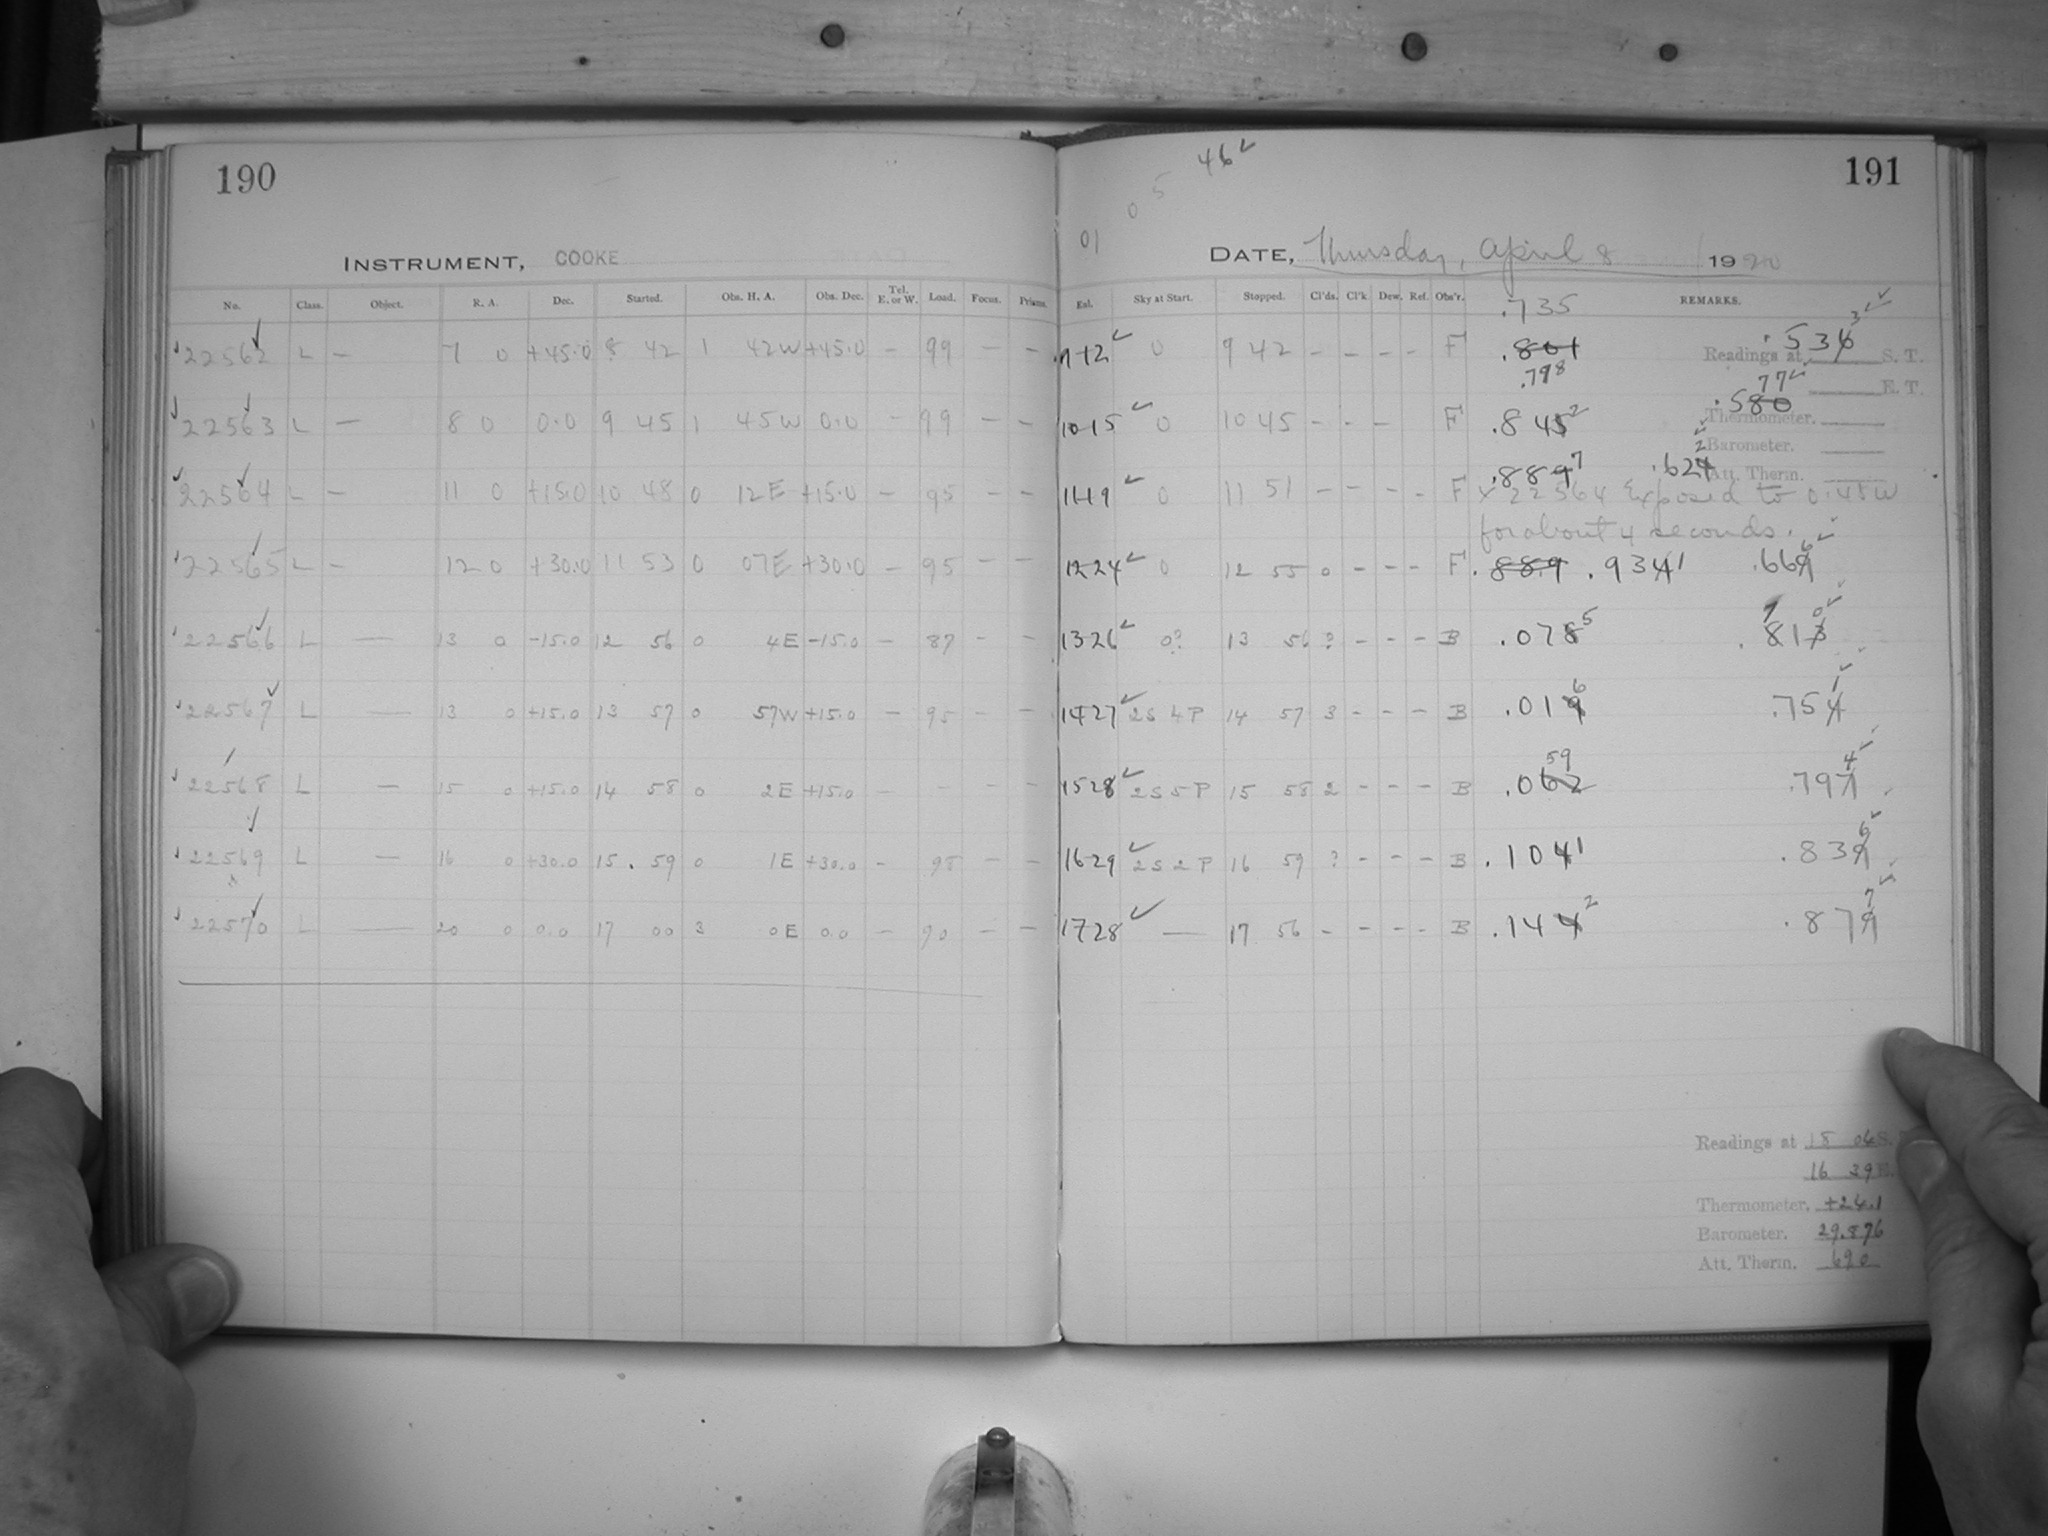 190
INSTRUMENT, COOKE
No. Class. Object. R. A. Dec. Started. Obs. H. A. Obs. Dec. Tel. E. or W. Load. Focus. Prisms.
22562 L — 7 0 +45.0 8 42 1 42W +45.0 — 99 — —
22563 L — 8 0 0.0 9 45 1 45W 0.0 — 99 — —
22564 L — 11 0 +15.0 10 48 0 12E +15.0 — 95 — —
22565 L — 12 0 +30.0 11 53 0 07E +30.0 — 95 — —
22566 L — 13 0 -15.0 12 56 0 4E -15.0 — 87 - -
22567 L — 13 0 +15.0 13 57 0 57W +15.0 — 95 - -
22568 L — 15 0 +15.0 14 58 0 2E +15.0 — - - -
22569 L — 16 0 +30.0 15. 59 0 1E +30.0 - 95 - -
22570 L — 20 0 0.0 17 00 3 0E 0.0 - 90 - -
46 ✓
0 5
01
191
DATE, Thursday, April 8 1920
Eal. Sky at Start. Stopped. Cl'ds. Cl'k. Dew. Ref. Obs'r. REMARKS.
.735
9 12 ✓ 0 9 42 - - - - F .801 .536 3 ✓✓
Readings at S. T.
.798 77 ✓ E. T.
.580
10 15 ✓ 0 10 45 - - - F .845 2 Thermometer.
Barometer.
.889 7 .624 2 ✓ Att. Therm.
11 19 ✓ 0 11 51 - - - - F x 22564 Exposed to 0.48W
for about 4 seconds.
12 24 ✓ 0 12 55 0 - - - F .889 .934 1 .669 6 ✓
13 26 ✓ 0? 13 56 ? - - - B .078 5 .813 0 ✓
14 27 ✓ 2S 4P 14 57 3 - - - B .019 6 .754 1 ✓
15 28 ✓ 2S 5P 15 58 2 - - - B .062 59 .797 4 ✓
16 29 ✓ 2S 2P 16 59 ? - - - B .104 1 .839 6 ✓
17 28 ✓ — 17 56 - - - - B .144 2 .879 7 ✓
Readings at 18 04 S.
16 39 E.
Thermometer. +24.1
Barometer. 29.876
Att. Therm. 69.0